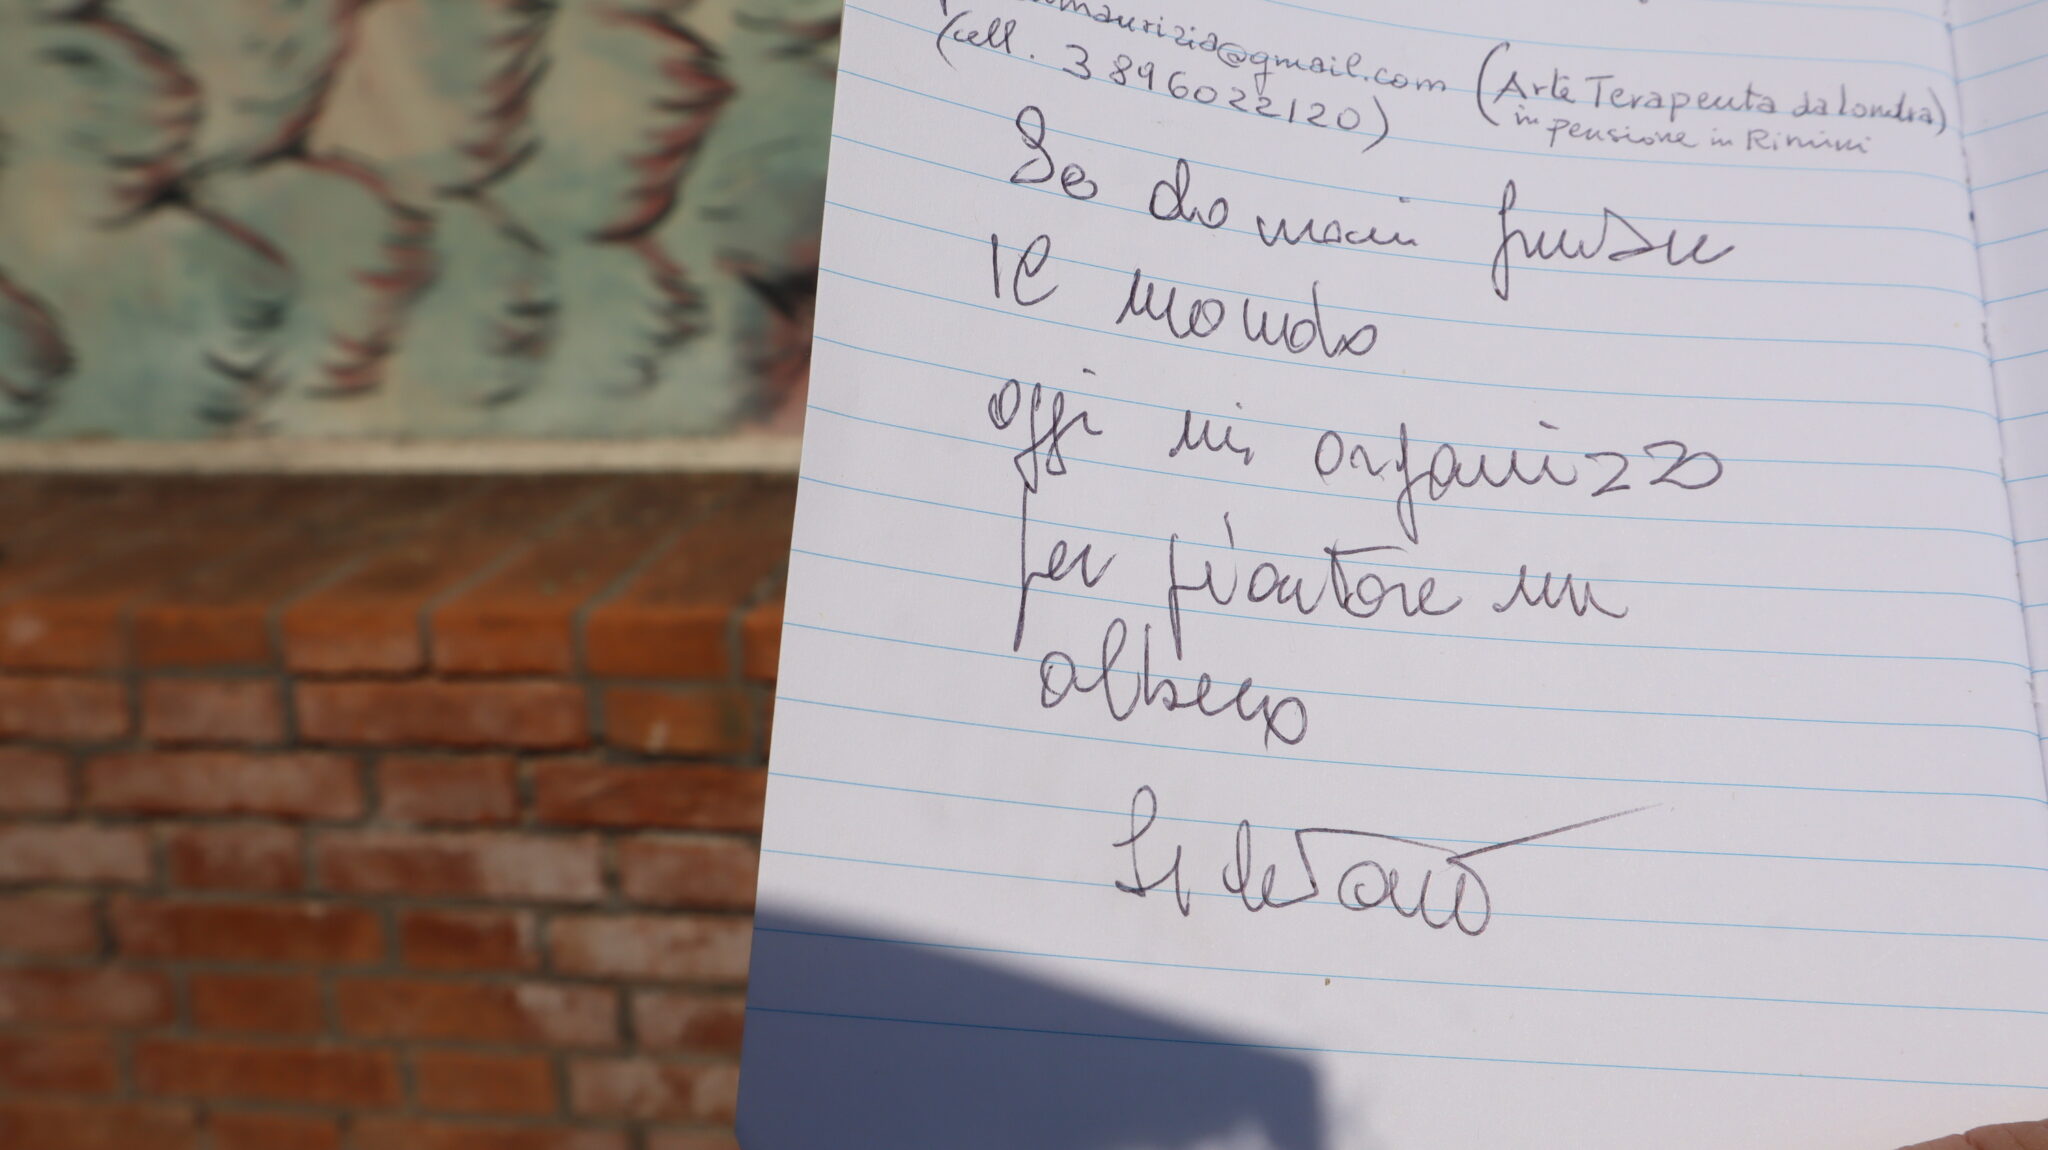 maurizia@gmail.com (Arte Terapeuta da Londra)
(cell. 3896022120) in pensione in Rimini
Se domani finisse
il mondo
oggi mi organizzo
per piantare un
albero